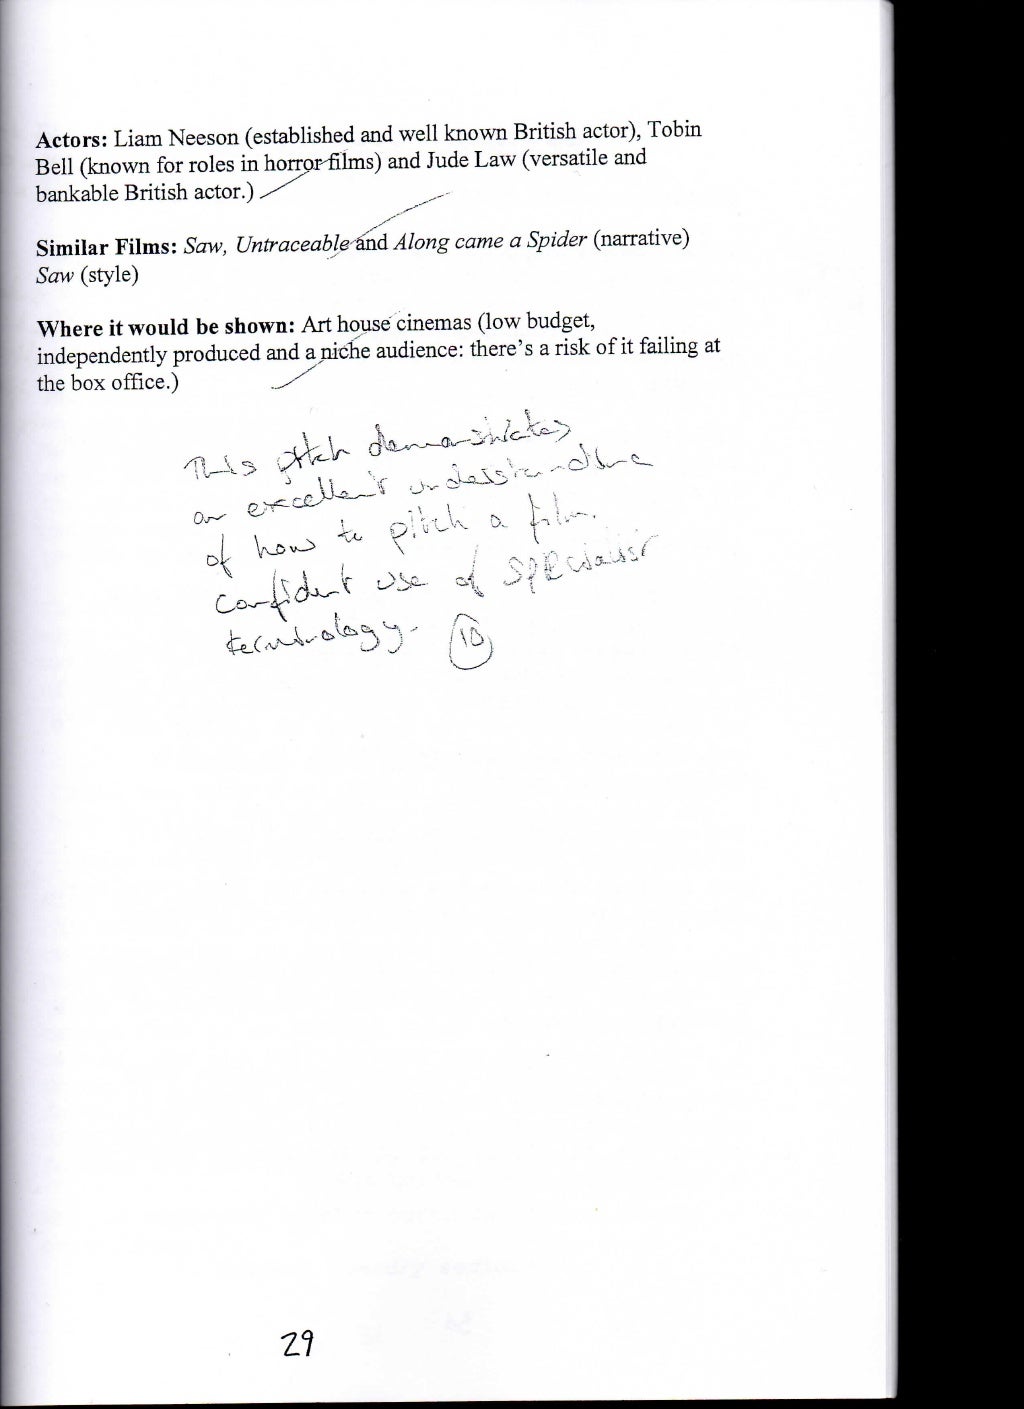 Actors: Liam Neeson (established and well known British actor), Tobin
Bell (known for roles in horror films) and Jude Law (versatile and
bankable British actor.)
Similar Films: Saw, Untraceable and Along came a Spider (narrative)
Saw (style)
Where it would be shown: Art house cinemas (low budget,
independently produced and a niche audience: there's a risk of it failing at
the box office.)
This pitch demonstrates
an excellent understanding
of how to pitch a film.
Confident use of specialist
terminology. 10
29